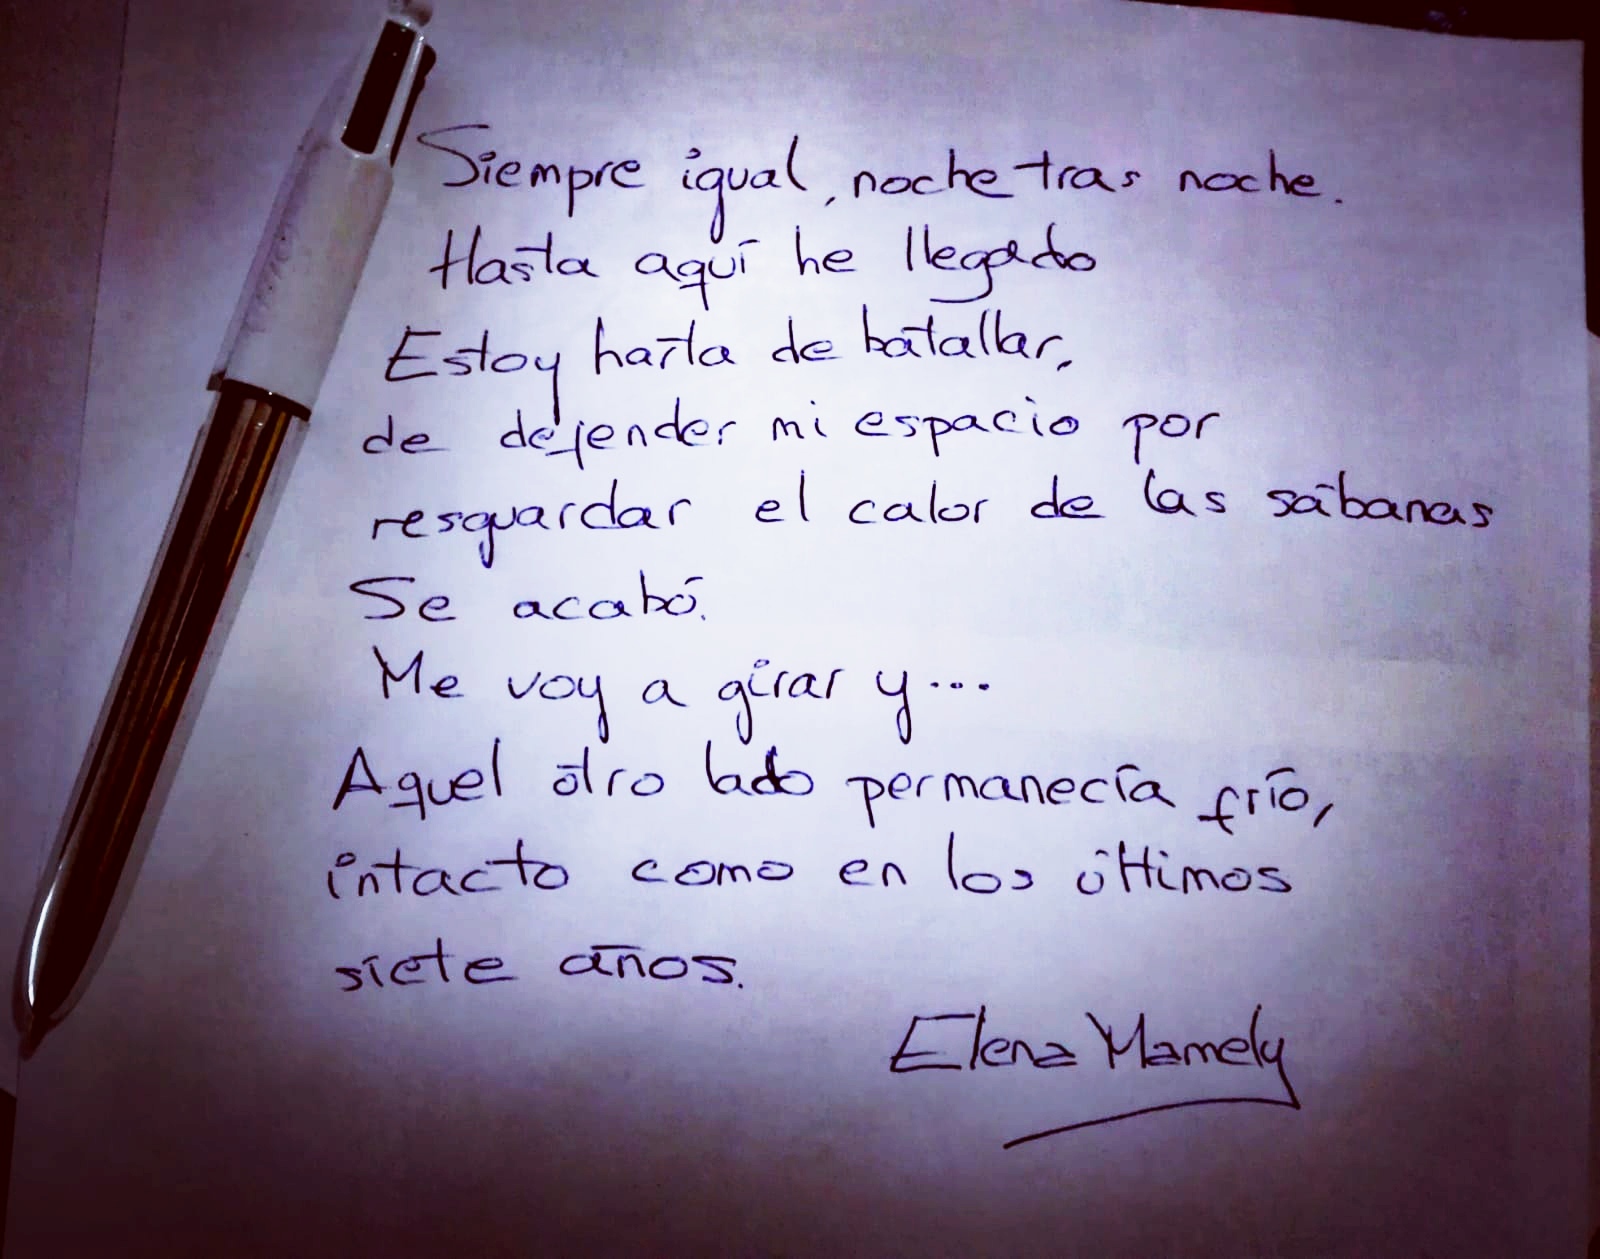 Siempre igual, noche tras noche.
Hasta aquí he llegado
Estoy harta de batallar,
de defender mi espacio por
resguardar el calor de las sábanas
Se acabó.
Me voy a girar y...
Aquel otro lado permanecía frío,
intacto como en los últimos
siete años.
Elena Mamely